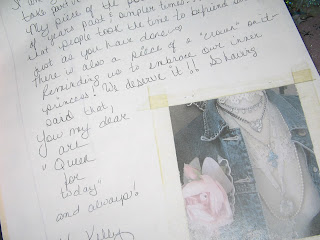 take part
My piece of the
of years past & simpler times
that people took the time to befriend
just as you have done
there is also a piece of a "crown" on it-
reminding us to embrace our inner
princess! We deserve it!! So having
said that,
you my dear
are
"Queen
for
today"
and always!
Kelly